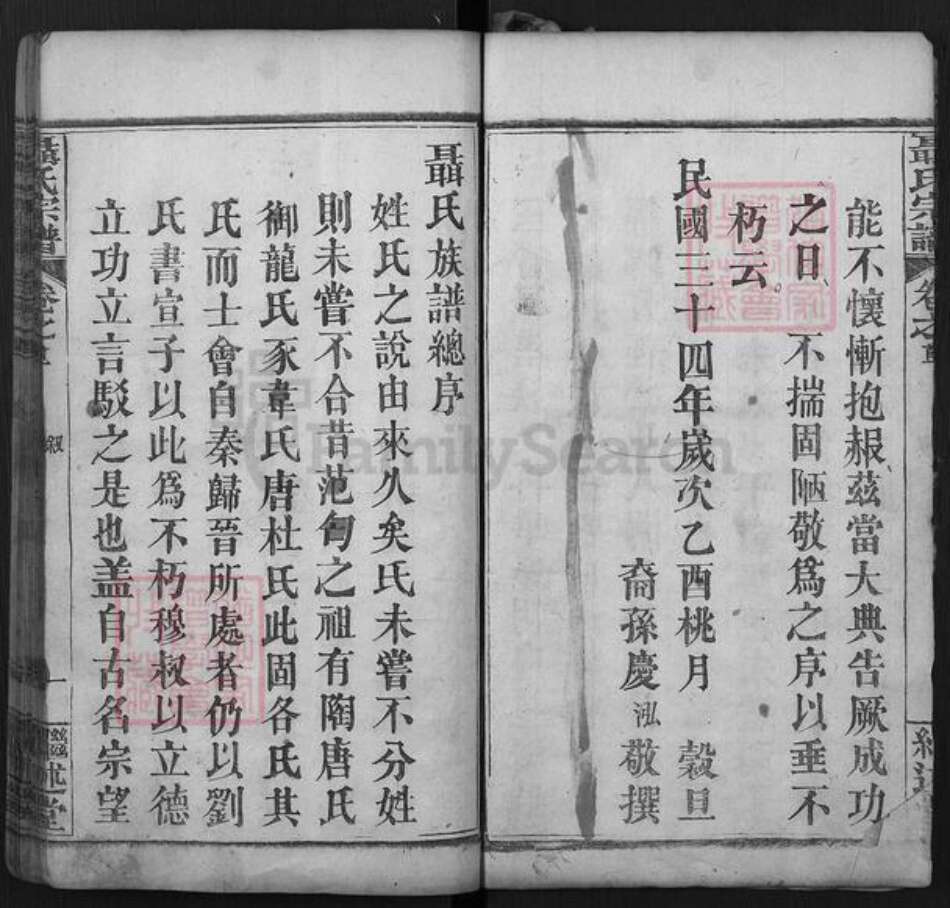 聶氏宗譜
卷之首
能不懷慚抱赧茲當大典告厥成功
之日不揣固陋敬爲之序以垂不
朽云
民國三十四年歲次乙酉桃月 穀旦
裔孫慶泓敬撰
聶氏族譜總序
姓氏之說由來久矣氏未嘗不分姓
則未嘗不合昔范匄之祖有陶唐氏
御龍氏豕韋氏唐杜氏此固各氏其
氏而士會自秦歸晉所處者仍以劉
氏書宣子以此爲不朽穆叔以立德
立功立言駁之是也盖自古名宗望
聶氏宗譜
卷之首
叙
一
繼述堂
FamilySearch